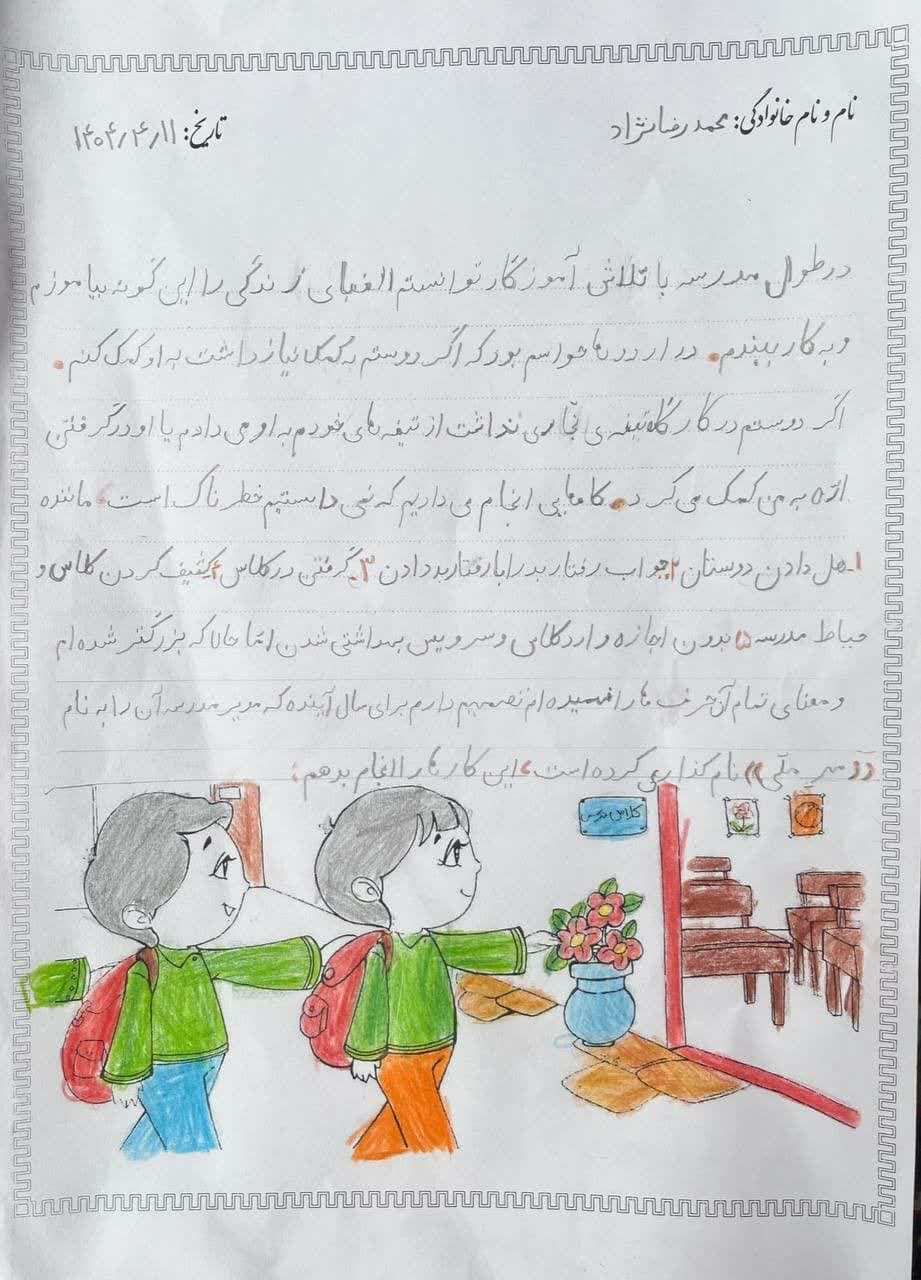 نام و نام خانوادگی: محمد رضانژاد
تاریخ: ۱۴۰۴/۴/۱۱
در طول مدرسه با تلاش آموزگار توانستم الفبای زندگی را این گونه بیاموزم
و به کار ببندم. در اردوها حواسم بود که اگر دوستم به کمک نیاز داشت به او کمک کنم.
اگر دوستم در کارگاه تیغه ی نجاری نداشت از تیغه های خودم به او می دادم یا او در گرفتن
ارّه به من کمک می کرد. کارهایی انجام می دادیم که نمی دانستیم خطرناک است. ماننده
۱.هل دادن دوستان ۲.جواب رفتار بد را با رفتار بد دادن ۳.گرفتن در کلاس ۴.کثیف کردن کلاس و
حیاط مدرسه ۵.بدون اجازه وارد کلاس و سرویس بهداشتی شدن امّا حالا که بزرگتر شده ام
و معنای تمام آن حرف ها را فهمیده ام تصمیم دارم برای سال آینده که مدیر مدرسه آن را به نام
«» نام گذاری کرده است، این کارها را انجام بدهم:
کلاس درس